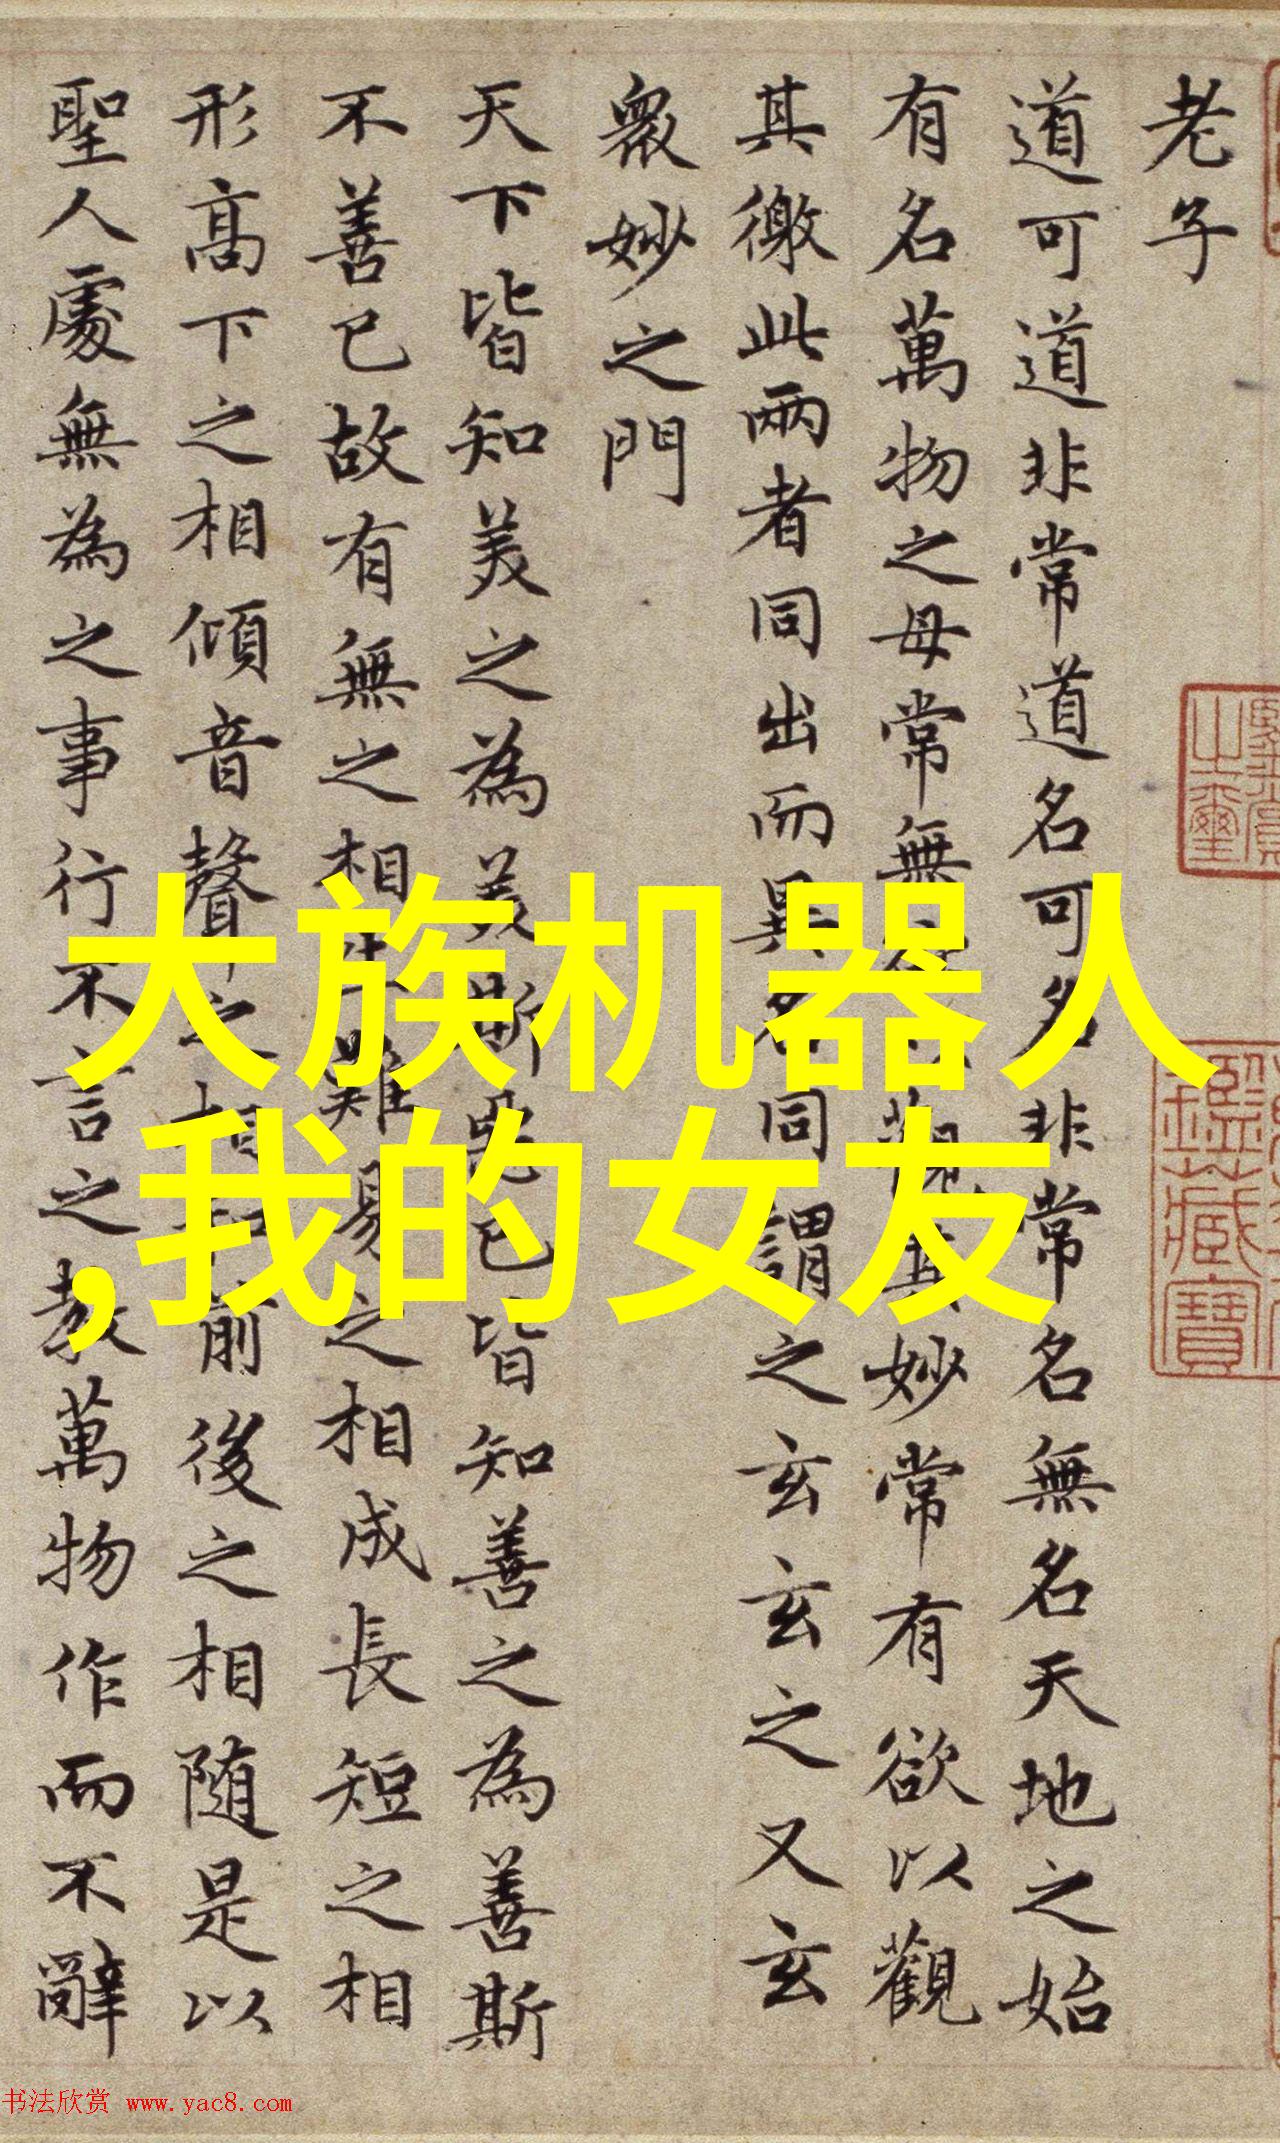 老子
道可道非常道名可名非常名無名天地之始
有名萬物之母常無欲以觀其妙常有欲以觀
其徼此兩者同出而異名同謂之玄玄之又玄
衆妙之門
天下皆知美之為美斯惡已皆知善之為善斯
不善已故有無之相生難易之相成長短之相
形高下之相傾音聲之相和前後之相随是以
聖人處無為之事行不言之教萬物作而不辭
大族机器人
,我的女友
書法欣赏 www.yac8.com